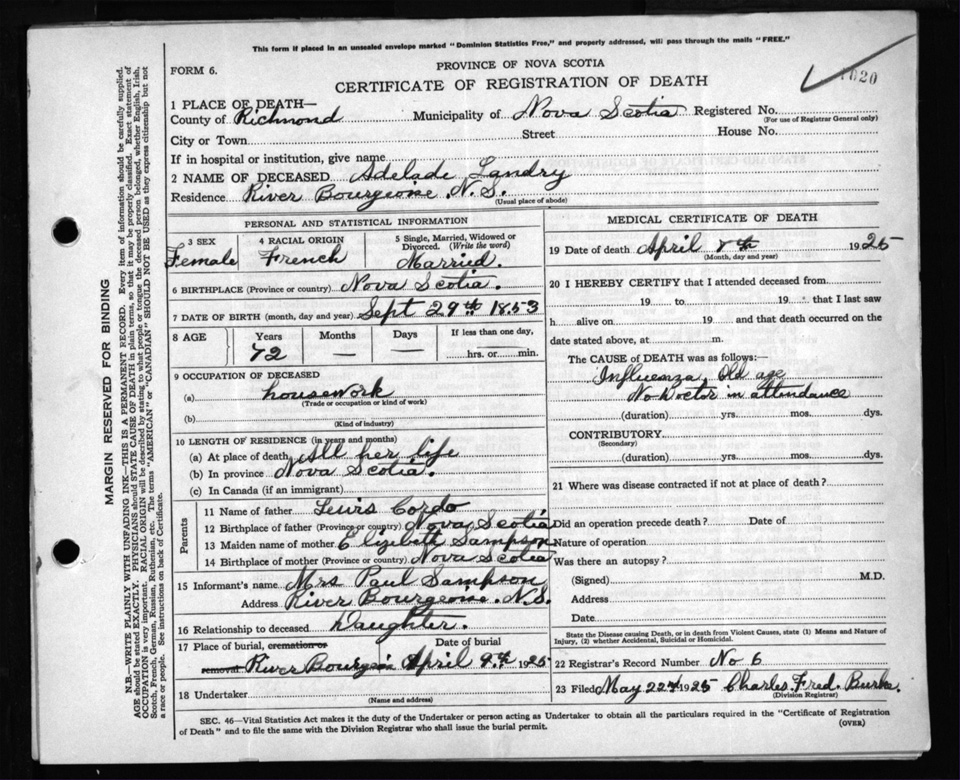 This form if placed in an unsealed envelope marked "Dominion Statistics Free," and properly addressed, will pass through the mails "FREE."
FORM 6.
PROVINCE OF NOVA SCOTIA
CERTIFICATE OF REGISTRATION OF DEATH
1020
1 PLACE OF DEATH—
County of Richmond Municipality of Nova Scotia Registered No.
(For use of Registrar General only)
City or Town Street House No.
If in hospital or institution, give name
2 NAME OF DECEASED Adelade Landry
Residence River Bourgeoise N.S.
(Usual place of abode)
PERSONAL AND STATISTICAL INFORMATION
3 SEX 4 RACIAL ORIGIN 5 Single, Married, Widowed or Divorced. (Write the word)
Female French Married.
6 BIRTHPLACE (Province or country) Nova Scotia.
7 DATE OF BIRTH (month, day and year) Sept 29th 1853
8 AGE Years Months Days If less than one day,
72 — — hrs. or min.
9 OCCUPATION OF DECEASED
(a) housework
(Trade or occupation or kind of work)
(b)
(Kind of industry)
10 LENGTH OF RESIDENCE (in years and months)
(a) At place of death All her life
(b) In province Nova Scotia.
(c) In Canada (if an immigrant)
Parents
11 Name of father Lewis Cordo
12 Birthplace of father (Province or country) Nova Scotia
13 Maiden name of mother Elizebeth Sampson
14 Birthplace of mother (Province or country) Nova Scotia
15 Informant's name Mrs Paul Sampson
Address River Bourgeoise. N.S.
16 Relationship to deceased Daughter.
17 Place of burial, cremation or Date of burial
removal River Bourgeois April 9th 1925
18 Undertaker
(Name and address)
MEDICAL CERTIFICATE OF DEATH
19 Date of death April 8th 1925
(Month, day and year)
20 I HEREBY CERTIFY that I attended deceased from
19 to 19 that I last saw
h alive on 19 and that death occurred on the
date stated above, at m.
The CAUSE OF DEATH was as follows:—
Influenza, Old age
No Doctor in attendance
(duration) yrs. mos. dys.
CONTRIBUTORY
(Secondary)
(duration) yrs. mos. dys.
21 Where was disease contracted if not at place of death?
Did an operation precede death? Date of
Nature of operation
Was there an autopsy?
(Signed) M.D.
Address
Date
State the Disease causing Death, or in death from Violent Causes, state (1) Means and Nature of
Injury, (2) whether Accidental, Suicidal or Homicidal.
22 Registrar's Record Number No 6
23 Filed May 22nd 1925 Charles. Fred. Burke.
(Division Registrar)
SEC. 46—Vital Statistics Act makes it the duty of the Undertaker or person acting as Undertaker to obtain all the particulars required in the "Certificate of Registration
of Death" and to file the same with the Division Registrar who shall issue the burial permit.
(OVER)
MARGIN RESERVED FOR BINDING
N.B.—WRITE PLAINLY WITH UNFADING INK—THIS IS A PERMANENT RECORD. Every item of information should be carefully supplied.
AGE should be stated EXACTLY. PHYSICIANS should STATE CAUSE OF DEATH in plain terms, so that it may be properly classified. Exact statement of
OCCUPATION is very important. RACIAL ORIGIN will be described by stating to what people or tongue the deceased person belonged, whether English, Irish,
Scotch, French, German, Russian, Ruthenian, etc. The terms "AMERICAN" or "CANADIAN" SHOULD NOT BE USED as they express citizenship but not
a race or people. See instructions on back of Certificate.